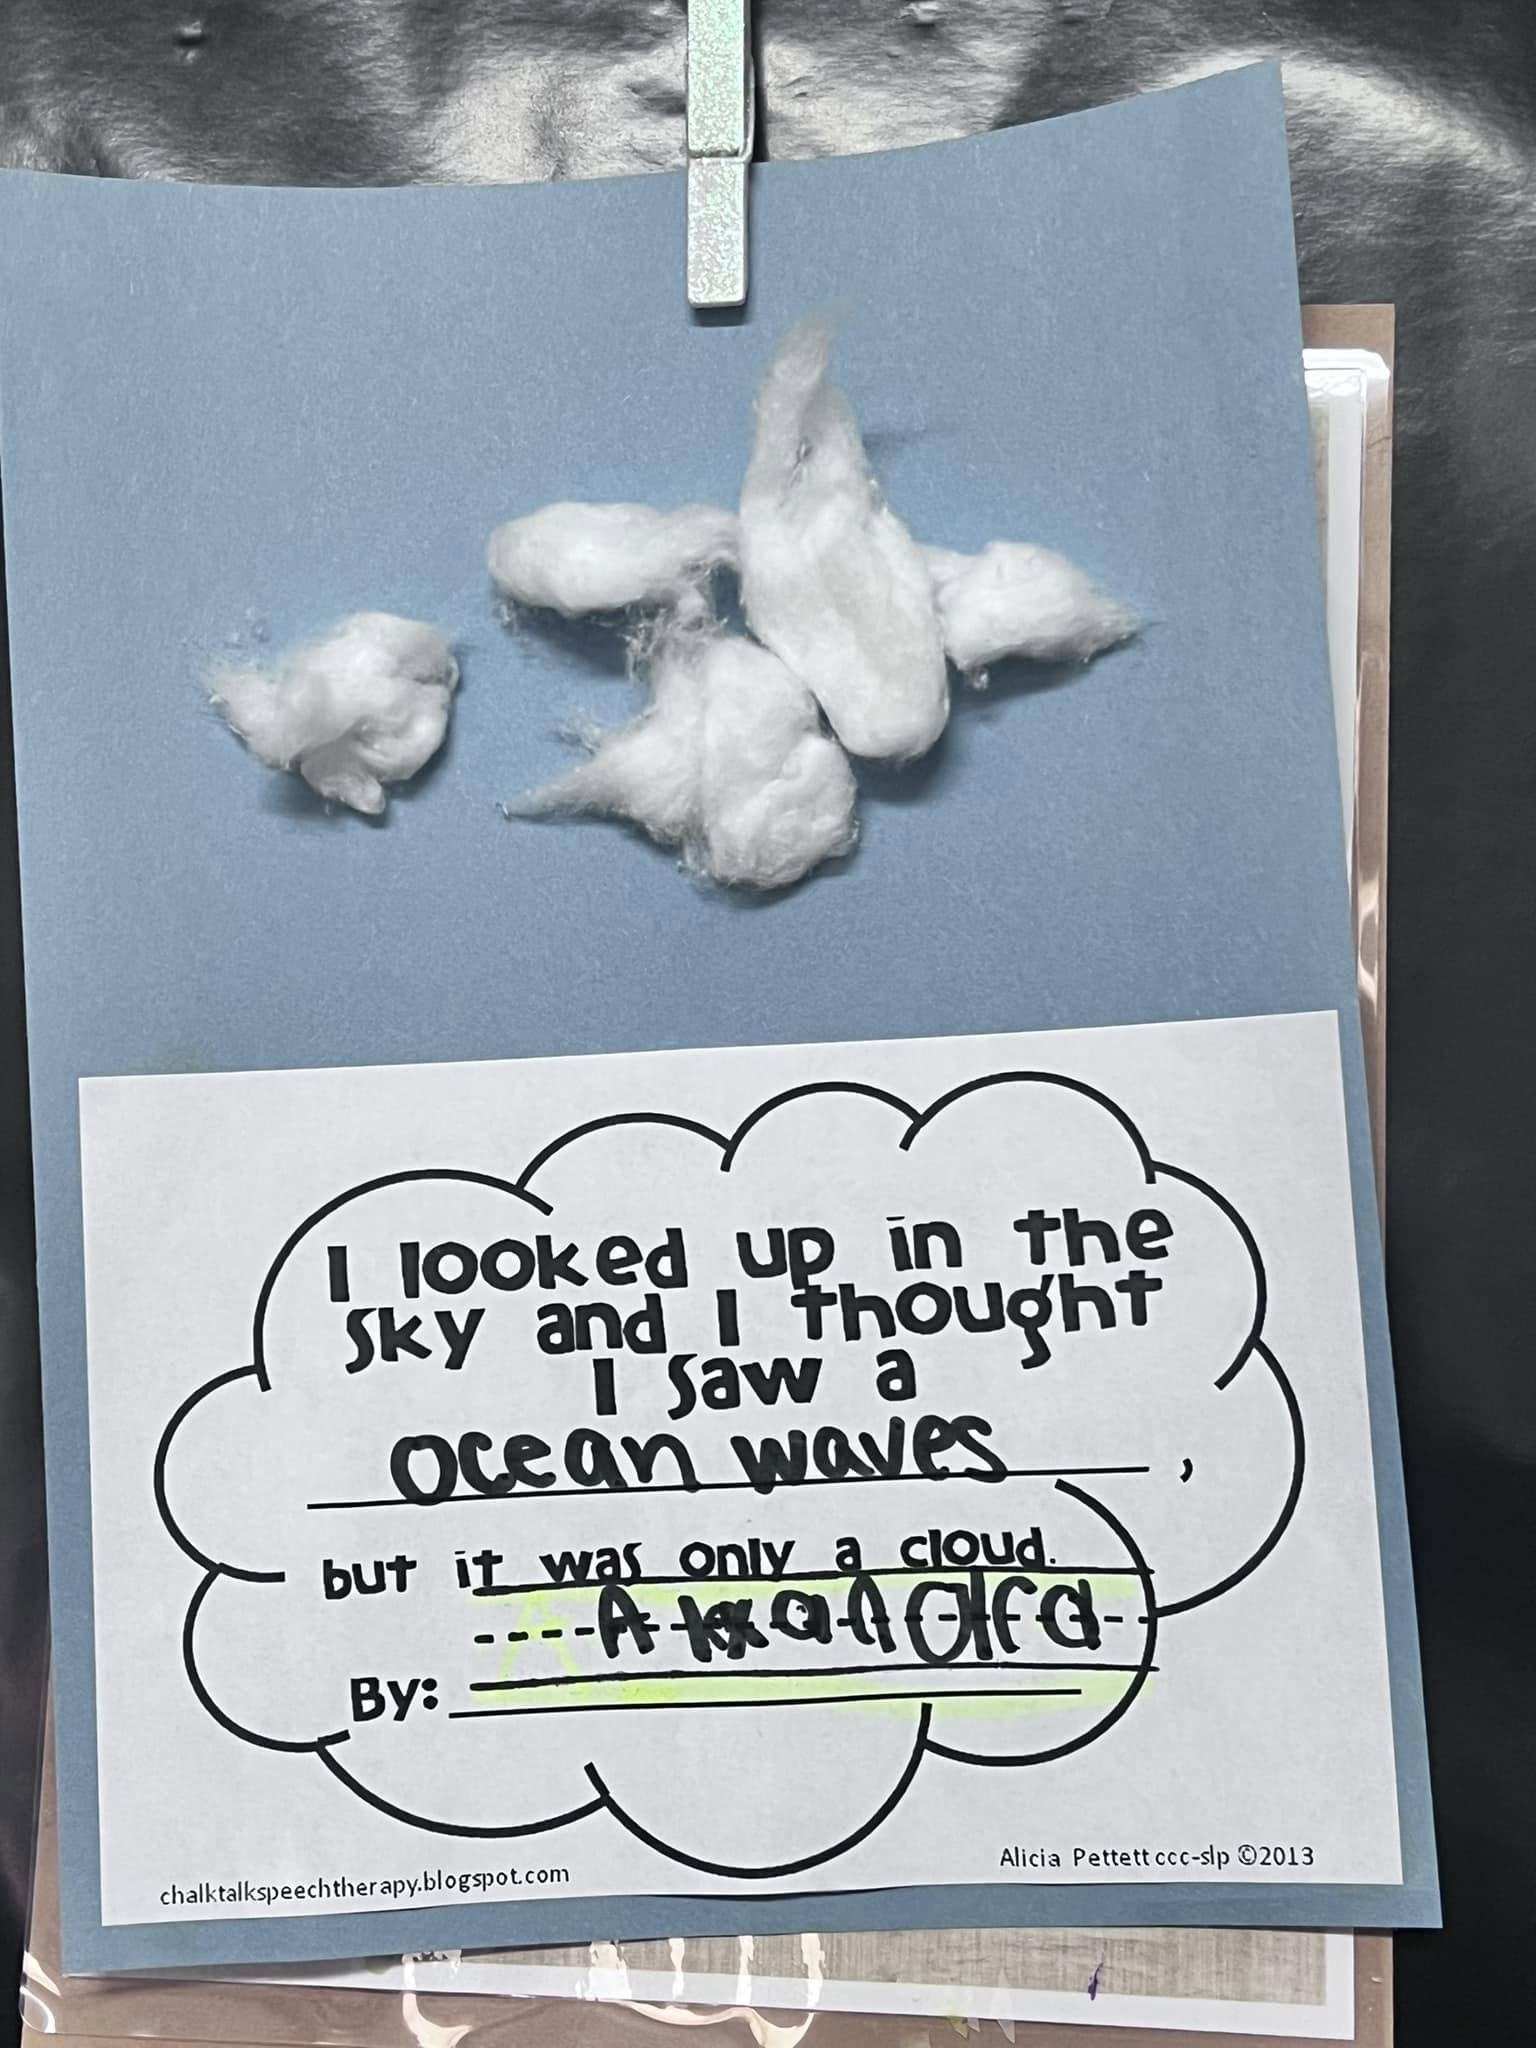 I looked up in the
sky and I thought
I saw a
ocean waves ,
but it was only a cloud.
By:
chalktalkspeechtherapy.blogspot.com
Alicia Pettett ccc-slp ©2013